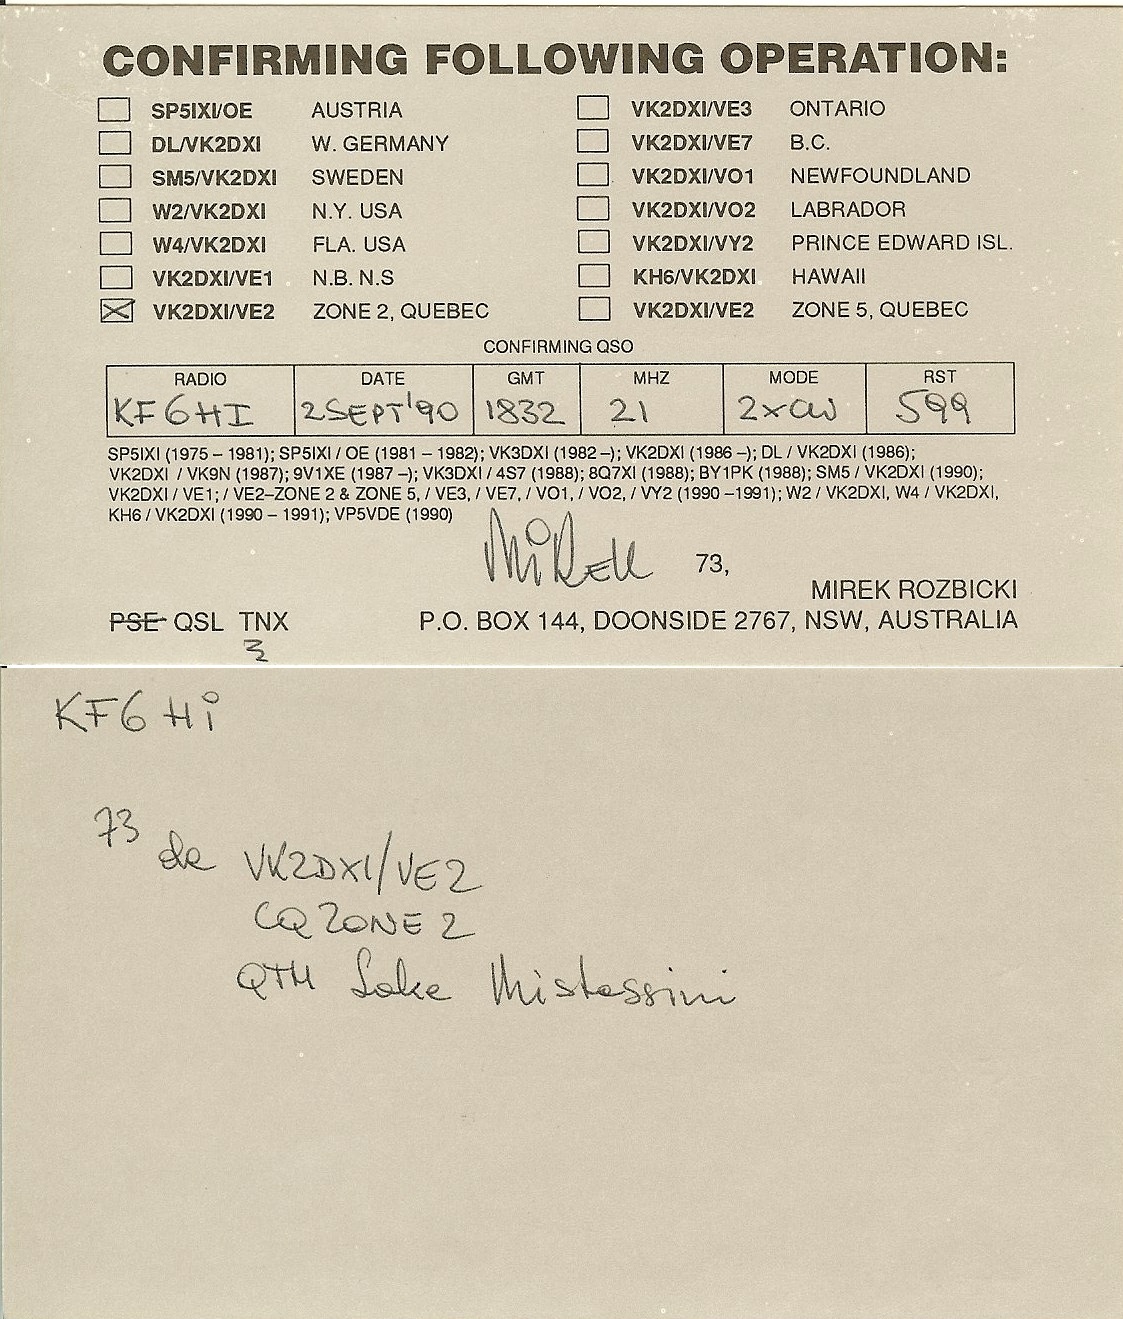 CONFIRMING FOLLOWING OPERATION:
SP5IXI/OE AUSTRIA
DL/VK2DXI W. GERMANY
SM5/VK2DXI SWEDEN
W2/VK2DXI N.Y. USA
W4/VK2DXI FLA. USA
VK2DXI/VE1 N.B. N.S
VK2DXI/VE2 ZONE 2, QUEBEC
VK2DXI/VE3 ONTARIO
VK2DXI/VE7 B.C.
VK2DXI/VO1 NEWFOUNDLAND
VK2DXI/VO2 LABRADOR
VK2DXI/VY2 PRINCE EDWARD ISL.
KH6/VK2DXI HAWAII
VK2DXI/VE2 ZONE 5, QUEBEC
CONFIRMING QSO
RADIO DATE GMT MHZ MODE RST
KF6HI 2SEPT'90 1832 21 2xCW 599
SP5IXI (1975 – 1981); SP5IXI / OE (1981 – 1982); VK3DXI (1982 –); VK2DXI (1986 –); DL / VK2DXI (1986);
VK2DXI / VK9N (1987); 9V1XE (1987 –); VK3DXI / 4S7 (1988); 8Q7XI (1988); BY1PK (1988); SM5 / VK2DXI (1990);
VK2DXI / VE1; / VE2–ZONE 2 & ZONE 5, / VE3, / VE7, / VO1, / VO2, / VY2 (1990 –1991); W2 / VK2DXI, W4 / VK2DXI,
KH6 / VK2DXI (1990 – 1991); VP5VDE (1990)
Mirek 73,
MIREK ROZBICKI
PSE QSL TNX P.O. BOX 144, DOONSIDE 2767, NSW, AUSTRALIA
KF6Hi
73
de VK2DXI/VE2
CQ ZONE 2
QTH Lake Mistassini